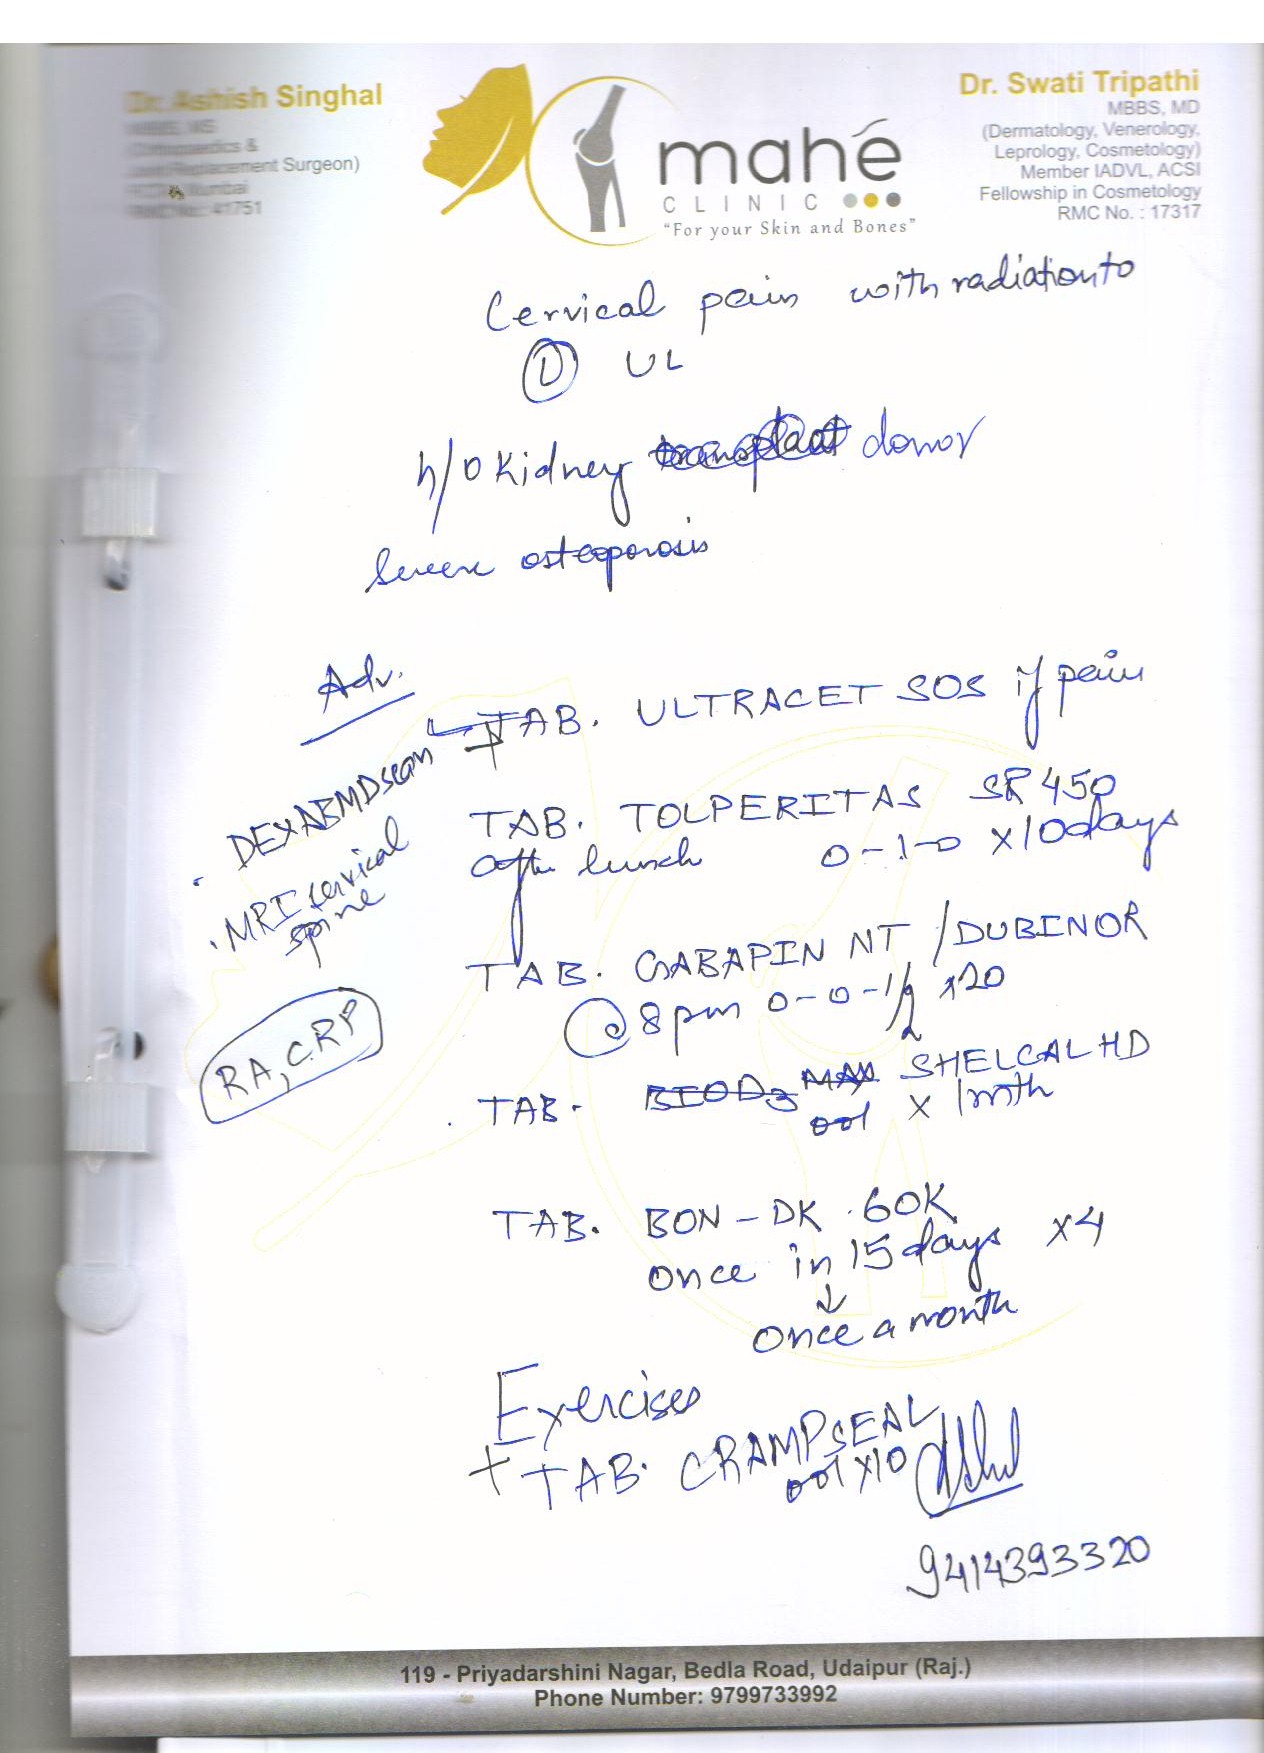 Dr. Ashish Singhal
MBBS, MS
(Orthopaedics &
Joint Replacement Surgeon)
Mumbai
41751
mahé
CLINIC
"For your Skin and Bones"
Dr. Swati Tripathi
MBBS, MD
(Dermatology, Venerology,
Leprology, Cosmetology)
Member IADVL, ACSI
Fellowship in Cosmetology
RMC No. : 17317
Cervical pain with radiation to
UL
h/o Kidney transplant donor
Severe osteoporosis
Adv.
TAB. ULTRACET SOS if pain
TAB. TOLPERITAS SR 450
after lunch 0-1-0 x10days
TAB. GABAPIN NT /DUBINOR
@8pm 0-0-1/2 x20
TAB. BIOD3 MAX SHELCAL HD
001 x 1mth
TAB. BON-DK 60K
once in 15 days x4
↓
once a month
Exercises
+ TAB. CRAMPSEAL
001 x10
9414393320
DEXA BMD scan
MRI cervical
spine
RA, CRP
119 - Priyadarshini Nagar, Bedla Road, Udaipur (Raj.)
Phone Number: 9799733992